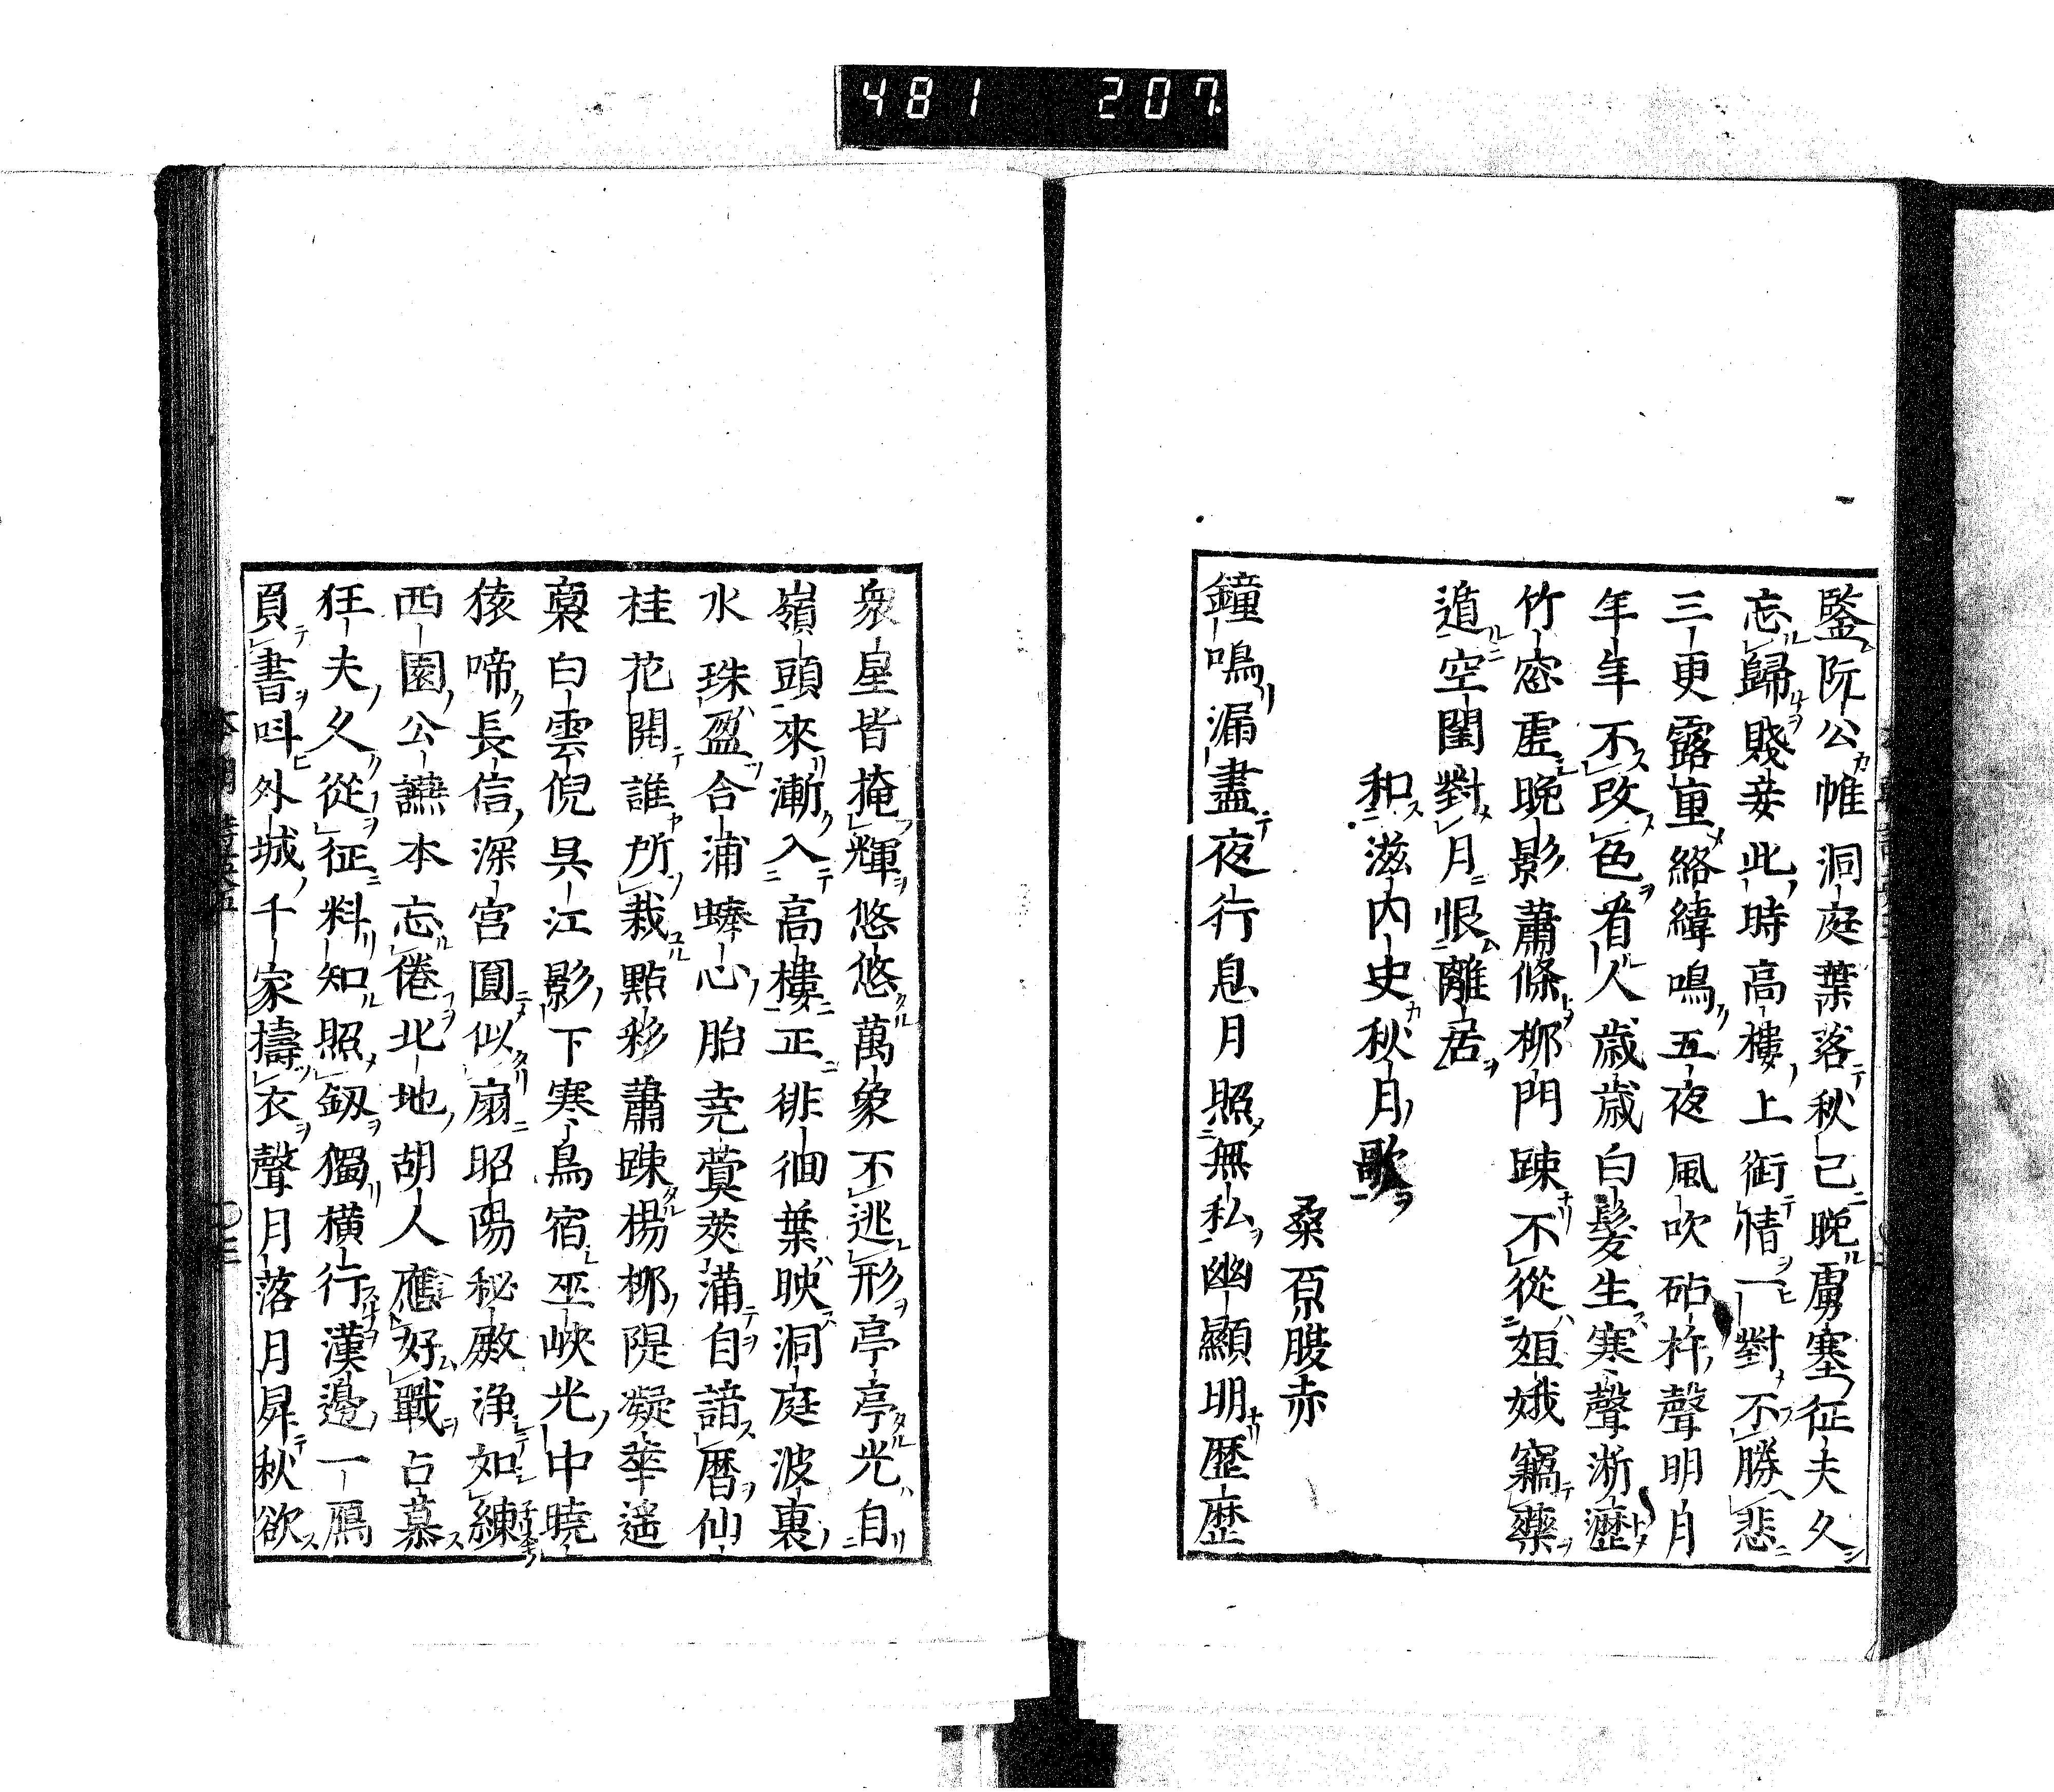 481 207
鑒阮公帷洞庭葉落秋已晚虜塞征夫久
忘歸賤妾此時高樓上衘情一對不勝悲
三更露重絡緯鳴五夜風吹砧杵聲明月
年年不改色看人歳歳白髮生寒聲淅瀝
竹窓虚晩影蕭條柳門踈不從姮娥竊藥
遁空閨對月恨離居
和滋内史秋月歌
桑原腹赤
鐘鳴漏盡夜行息月照無私幽顯明歴歴
衆星皆掩輝悠悠萬象不逃形亭亭光自
嶺頭來漸入高樓正徘徊葉映洞庭波裏
水珠盈合浦蜯心胎尭蓂莢滿自諳暦仙
桂花開誰所栽點彩蕭踈楊柳隄凝華遥
裛白雲倪呉江影下寒鳥宿巫峽光中曉
猿啼長信深宮圓似扇昭陽秘殿浄如練
西園公讌本忘倦北地胡人應好戰占募
狂夫久從征料知照釼獨橫行漢邊一鴈
負書呌外城千家擣衣聲月落月昇秋欲